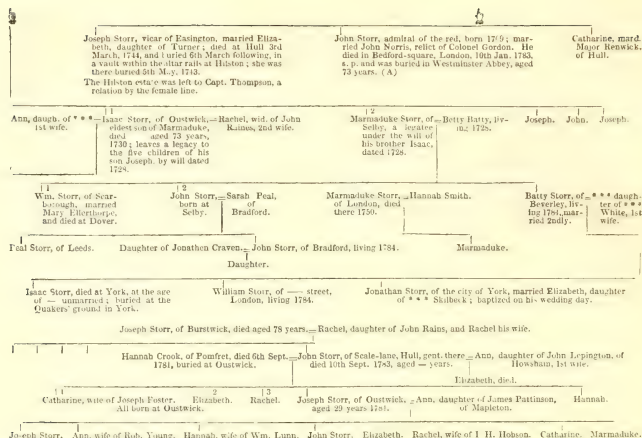 Joseph Storr, vicar of Easington, married Eliza-
beth, daughter of Turner; died at Hull 3rd
March, 1744, and buried 6th March following, in
a vault within the altar rails at Hilston; she was
there buried 5th May, 1743.
The Hilston estate was left to Capt. Thompson, a
relation by the female line.
John Storr, admiral of the red, born 1709; mar-
ried John Norris, relict of Colonel Gordon. He
died in Bedford-square, London, 10th Jan. 1783,
s. p. and was buried in Westminster Abbey, aged
73 years. (A)
Catharine, mard.
Major Renwick,
of Hull.
Ann, daugh. of * * *
1st wife.
1
Isaac Storr, of Oustwick,
eldest son of Marmaduke,
died aged 73 years,
1730; leaves a legacy to
the five children of his
son Joseph, by will dated
1728.
Rachel, wid. of John
Raines, 2nd wife.
2
Marmaduke Storr, of
Selby, a legatee
under the will of
his brother Isaac,
dated 1728.
Betty Batty, liv-
ing 1728.
Joseph.
John.
Joseph.
1
Wm. Storr, of Scar-
borough, married
Mary Ellerthorpe,
and died at Dover.
2
John Storr,
born at
Selby.
Sarah Peal,
of
Bradford.
Marmaduke Storr,
of London, died
there 1750.
Hannah Smith.
Batty Storr, of
Beverley, liv-
ing 1784, mar-
ried 2ndly.
* * * daugh-
ter of * * *
White, 1st
wife.
Peal Storr, of Leeds.
Daughter of Jonathen Craven.
John Storr, of Bradford, living 1784.
Marmaduke.
Daughter.
Isaac Storr, died at York, at the age
of — unmarried; buried at the
Quakers' ground in York.
William Storr, of —— street,
London, living 1784.
Jonathan Storr, of the city of York, married Elizabeth, daughter
of * * * Skilbeck; baptized on his wedding day.
Joseph Storr, of Burstwick, died aged 78 years.
Rachel, daughter of John Rains, and Rachel his wife.
Hannah Crook, of Pomfret, died 6th Sept.
1781, buried at Oustwick.
John Storr, of Scale-lane, Hull, gent. there
died 10th Sept. 1783, aged — years.
Ann, daughter of John Lepington, of
Howsham, 1st wife.
Elizabeth, died.
1
Catharine, wife of Joseph Foster.
2
Elizabeth.
3
Rachel.
All born at Oustwick.
Joseph Storr, of Oustwick,
aged 29 years 1784.
Ann, daughter of James Pattinson,
of Mapleton.
Hannah.
Joseph Storr. Ann, wife of Rob. Young. Hannah, wife of Wm. Lunn. John Storr. Elizabeth. Rachel, wife of I. H. Hobson. Catharine. Marmaduke.